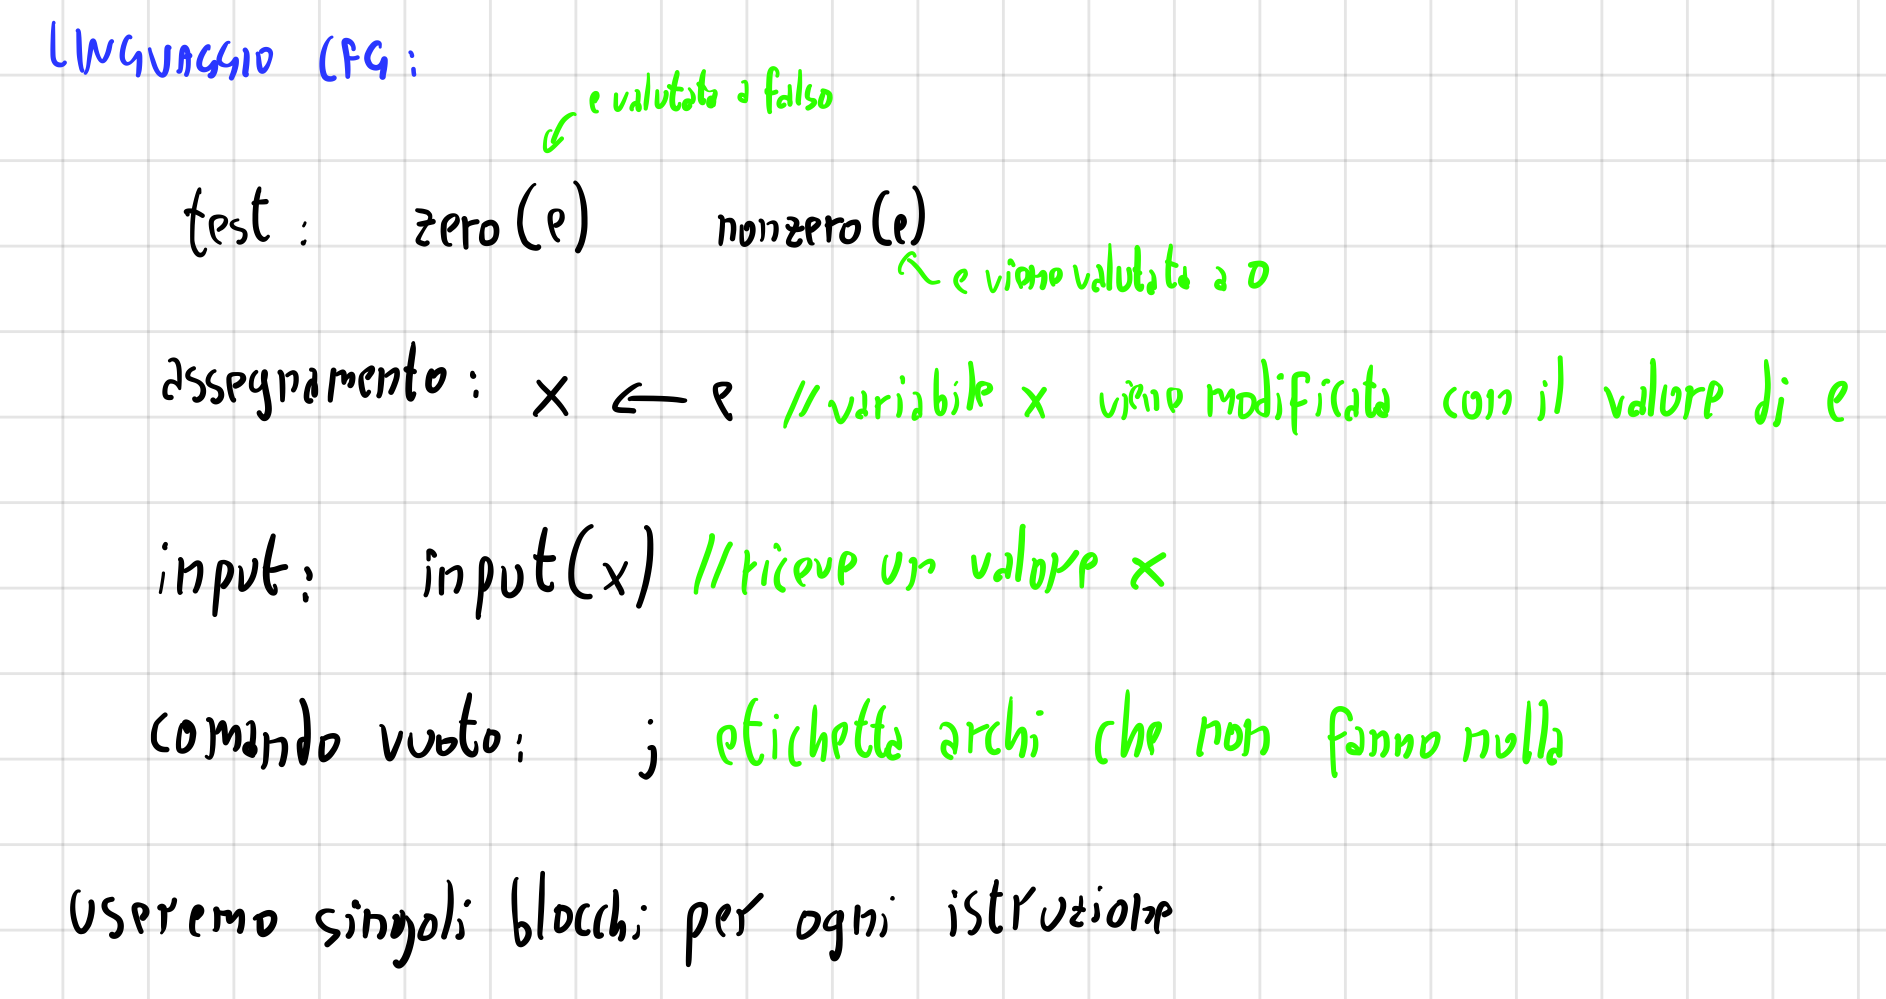 LINGUAGGIO CFG:
e valutata a falso
test: zero(e) nonzero(e)
e viene valutata a 0
assegnamento: x ← e //variabile x viene modificata con il valore di e
input: input(x) //riceve un valore x
comando vuoto: ; etichetta archi che non fanno nulla
useremo singoli blocchi per ogni istruzione